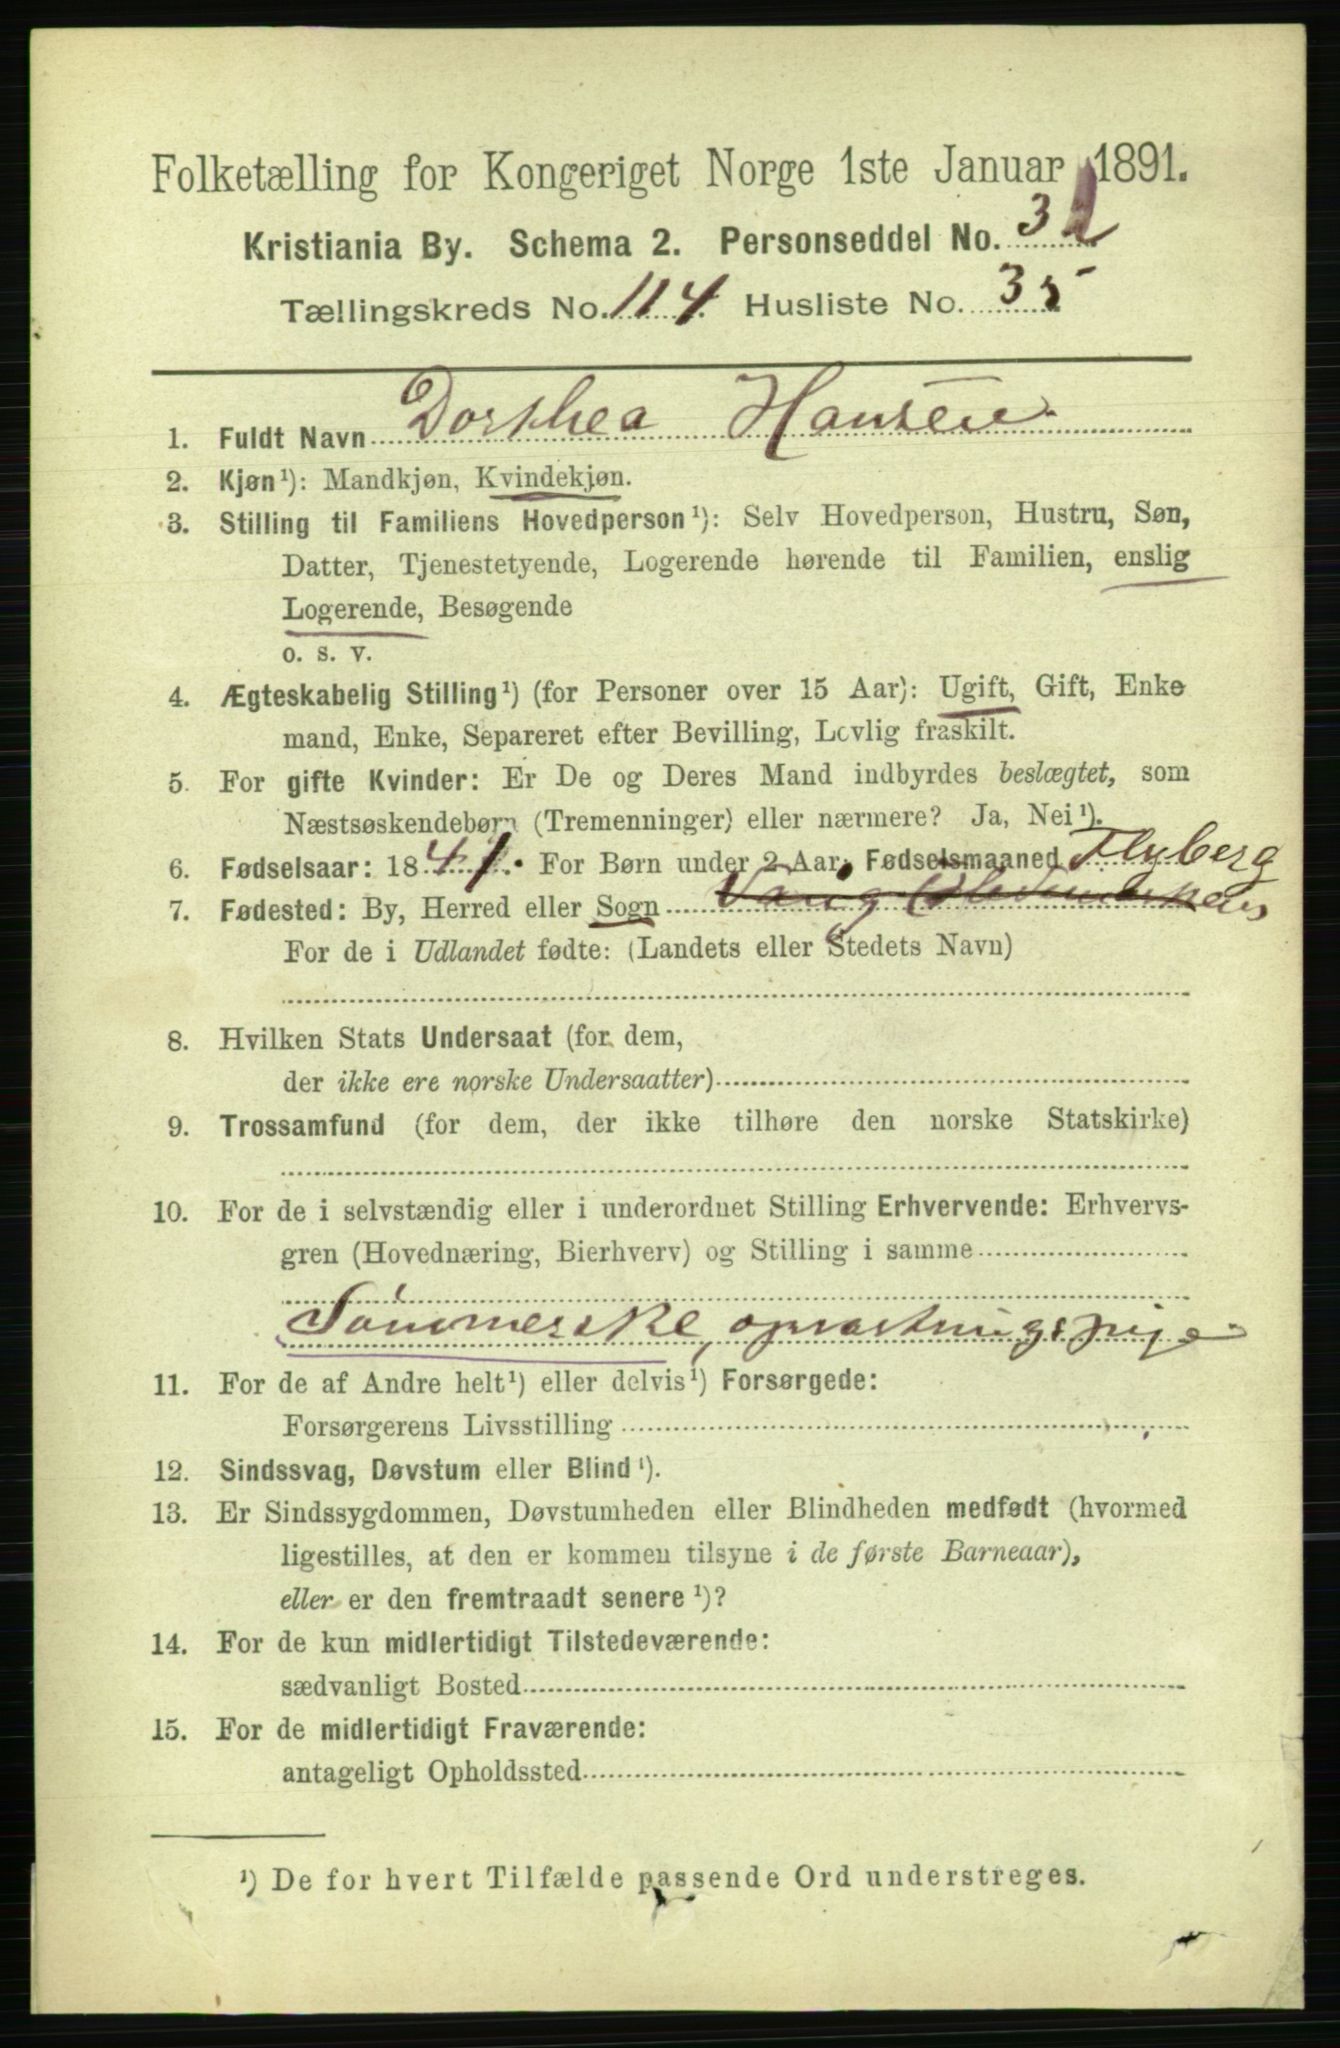 Folketælling for Kongeriget Norge 1ste Januar 1891.
Kristiania By. Schema 2. Personseddel No. 32
Tællingskreds No. 114. Husliste No. 35
1. Fuldt Navn Dorthea Hansen
2. Kjøn¹): Mandkjøn, Kvindekjøn.
3. Stilling til Familiens Hovedperson¹): Selv Hovedperson, Hustru, Søn,
Datter, Tjenestetyende, Logerende hørende til Familien, enslig
Logerende, Besøgende
o. s. v.
4. Ægteskabelig Stilling¹) (for Personer over 15 Aar): Ugift, Gift, Enke
mand, Enke, Separeret efter Bevilling, Lovlig fraskilt.
5. For gifte Kvinder: Er De og Deres Mand indbyrdes beslægtet, som
Næstsøskendebørn (Tremenninger) eller nærmere? Ja, Nei¹).
6. Fødselsaar: 1841. For Børn under 2 Aar: Fødselsmaaned Flyberg
7. Fødested: By, Herred eller Sogn Vang
For de i Udlandet fødte: (Landets eller Stedets Navn)
8. Hvilken Stats Undersaat (for dem,
der ikke ere norske Undersaatter)
9. Trossamfund (for dem, der ikke tilhøre den norske Statskirke)
10. For de i selvstændig eller i underordnet Stilling Erhvervende: Erhvervs-
gren (Hovednæring, Bierhverv) og Stilling i samme
Sömmerske, opvartningspige
11. For de af Andre helt¹) eller delvis¹) Forsørgede:
Forsørgerens Livsstilling
12. Sindssvag, Døvstum eller Blind¹).
13. Er Sindssygdommen, Døvstumheden eller Blindheden medfødt (hvormed
ligestilles, at den er kommen tilsyne i de første Barneaar),
eller er den fremtraadt senere¹)?
14. For de kun midlertidigt Tilstedeværende:
sædvanligt Bosted
15. For de midlertidigt Fraværende:
antageligt Opholdssted
¹) De for hvert Tilfælde passende Ord understreges.